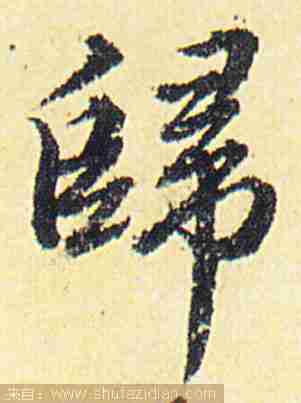 歸
来自：www.shufazidian.com